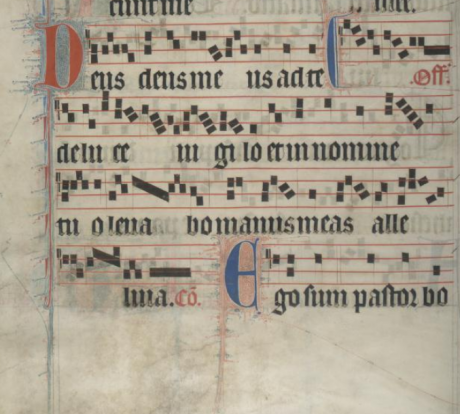 Deus deus me us ad te Off.
de lu ce ui gi lo et in nomine
tu o leua bo manus meas alle
luia. Cō. Ego sum pastor bo